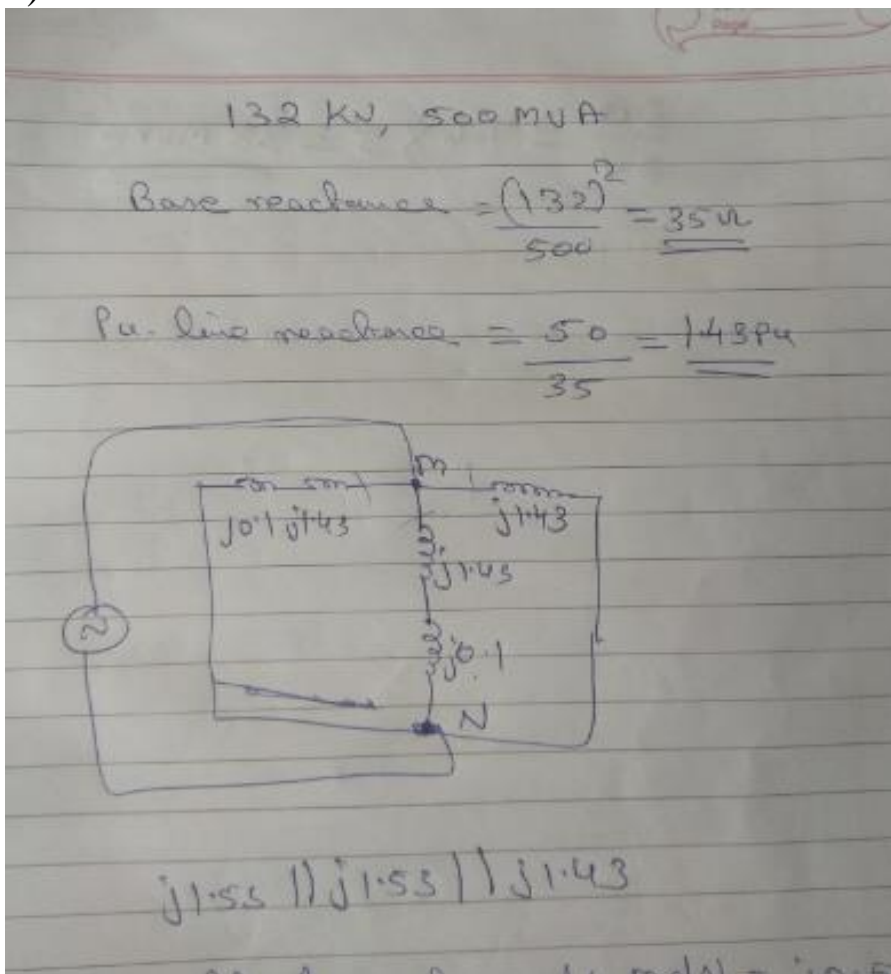 132 KV, 500 MVA
Base reactance = (132)² / 500 = 35Ω
Pu. line reactance = 50 / 35 = 1.43Pu
m
j0.1 j1.43
j1.43
j1.43
j0.1
N
j1.53 || j1.53 || j1.43